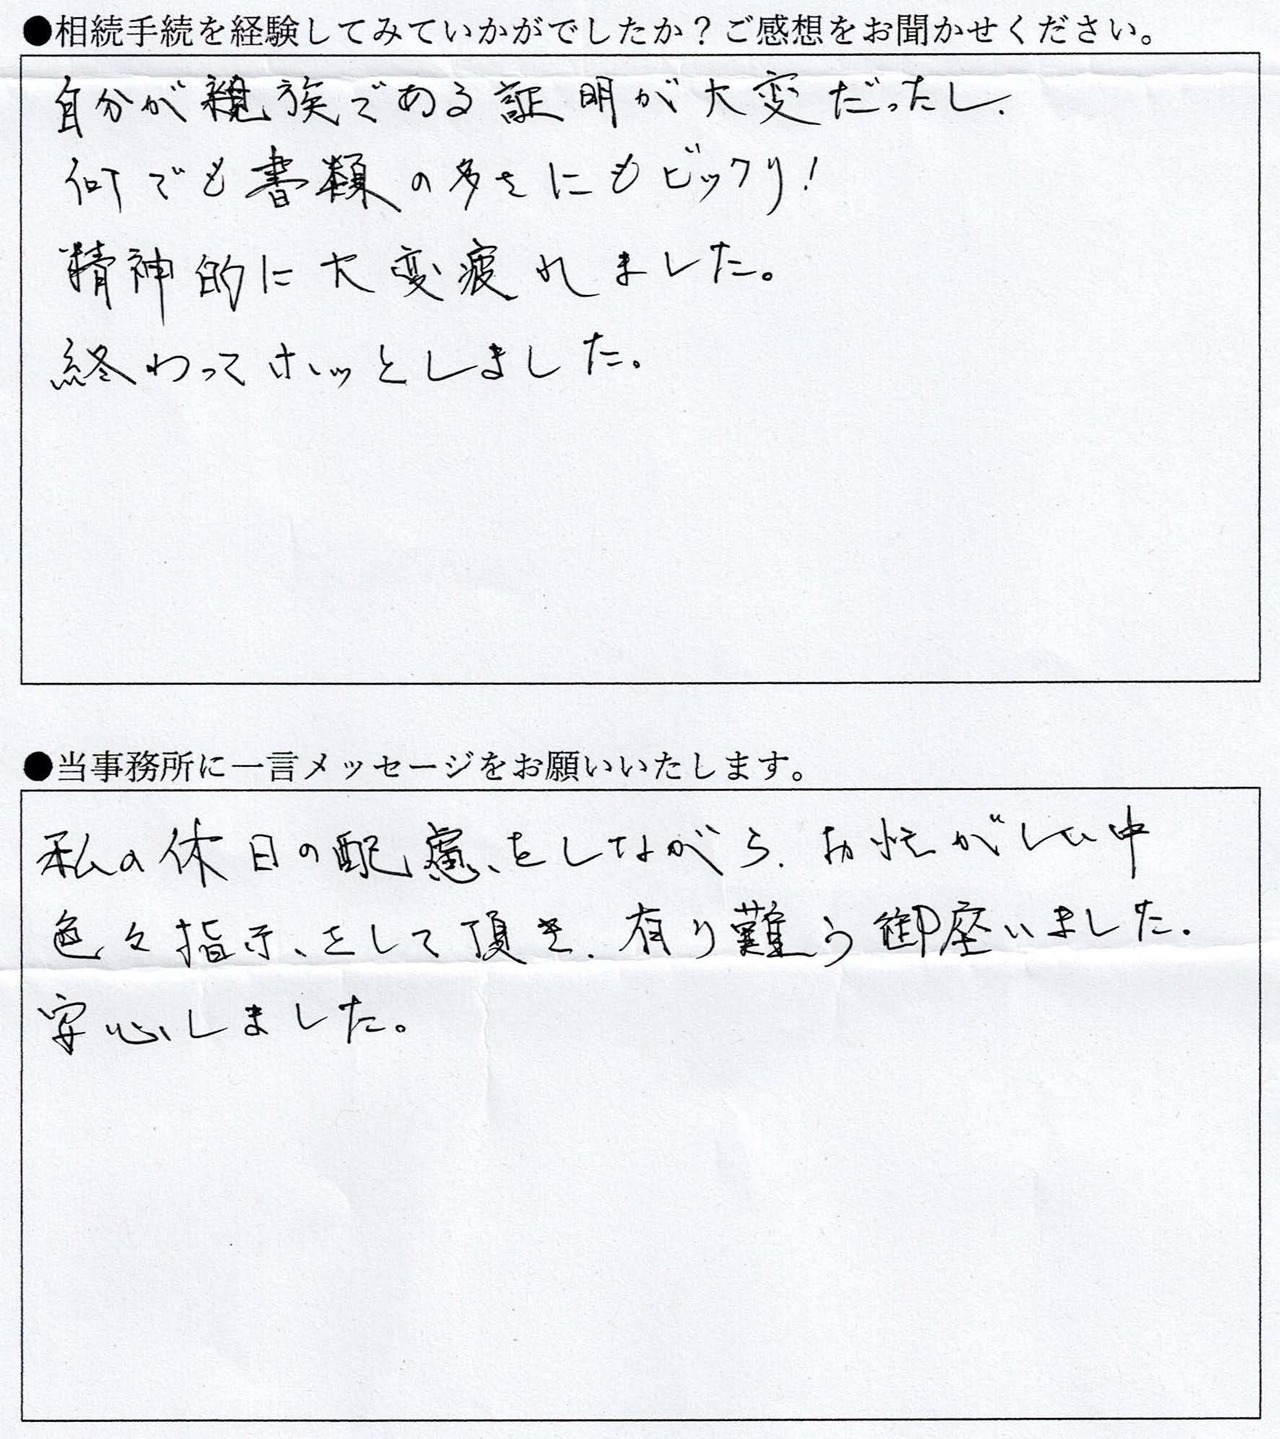 ●相続手続を経験してみていかがでしたか？ご感想をお聞かせください。
自分が親族である証明が大変だったし、
何でも書類の多さにもビックリ！
精神的に大変疲れました。
終わってホッとしました。
●当事務所に一言メッセージをお願いいたします。
私の休日の配慮をしながら、お忙がしい中
色々指示をして頂き、有り難う御座いました。
安心しました。